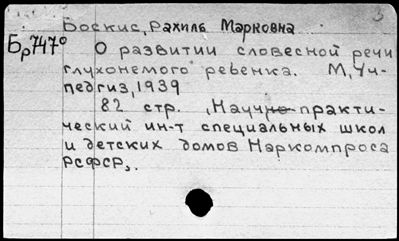 3
Боскис, Рахиль Марковна
Бр747⁰
О развитии словесной речи
глухонемого ребенка. М, Уч-
педгиз, 1939
82 стр. , Научно-практи-
ческий ин-т специальных школ
и детских домов Наркомпроса
РСФСР,.